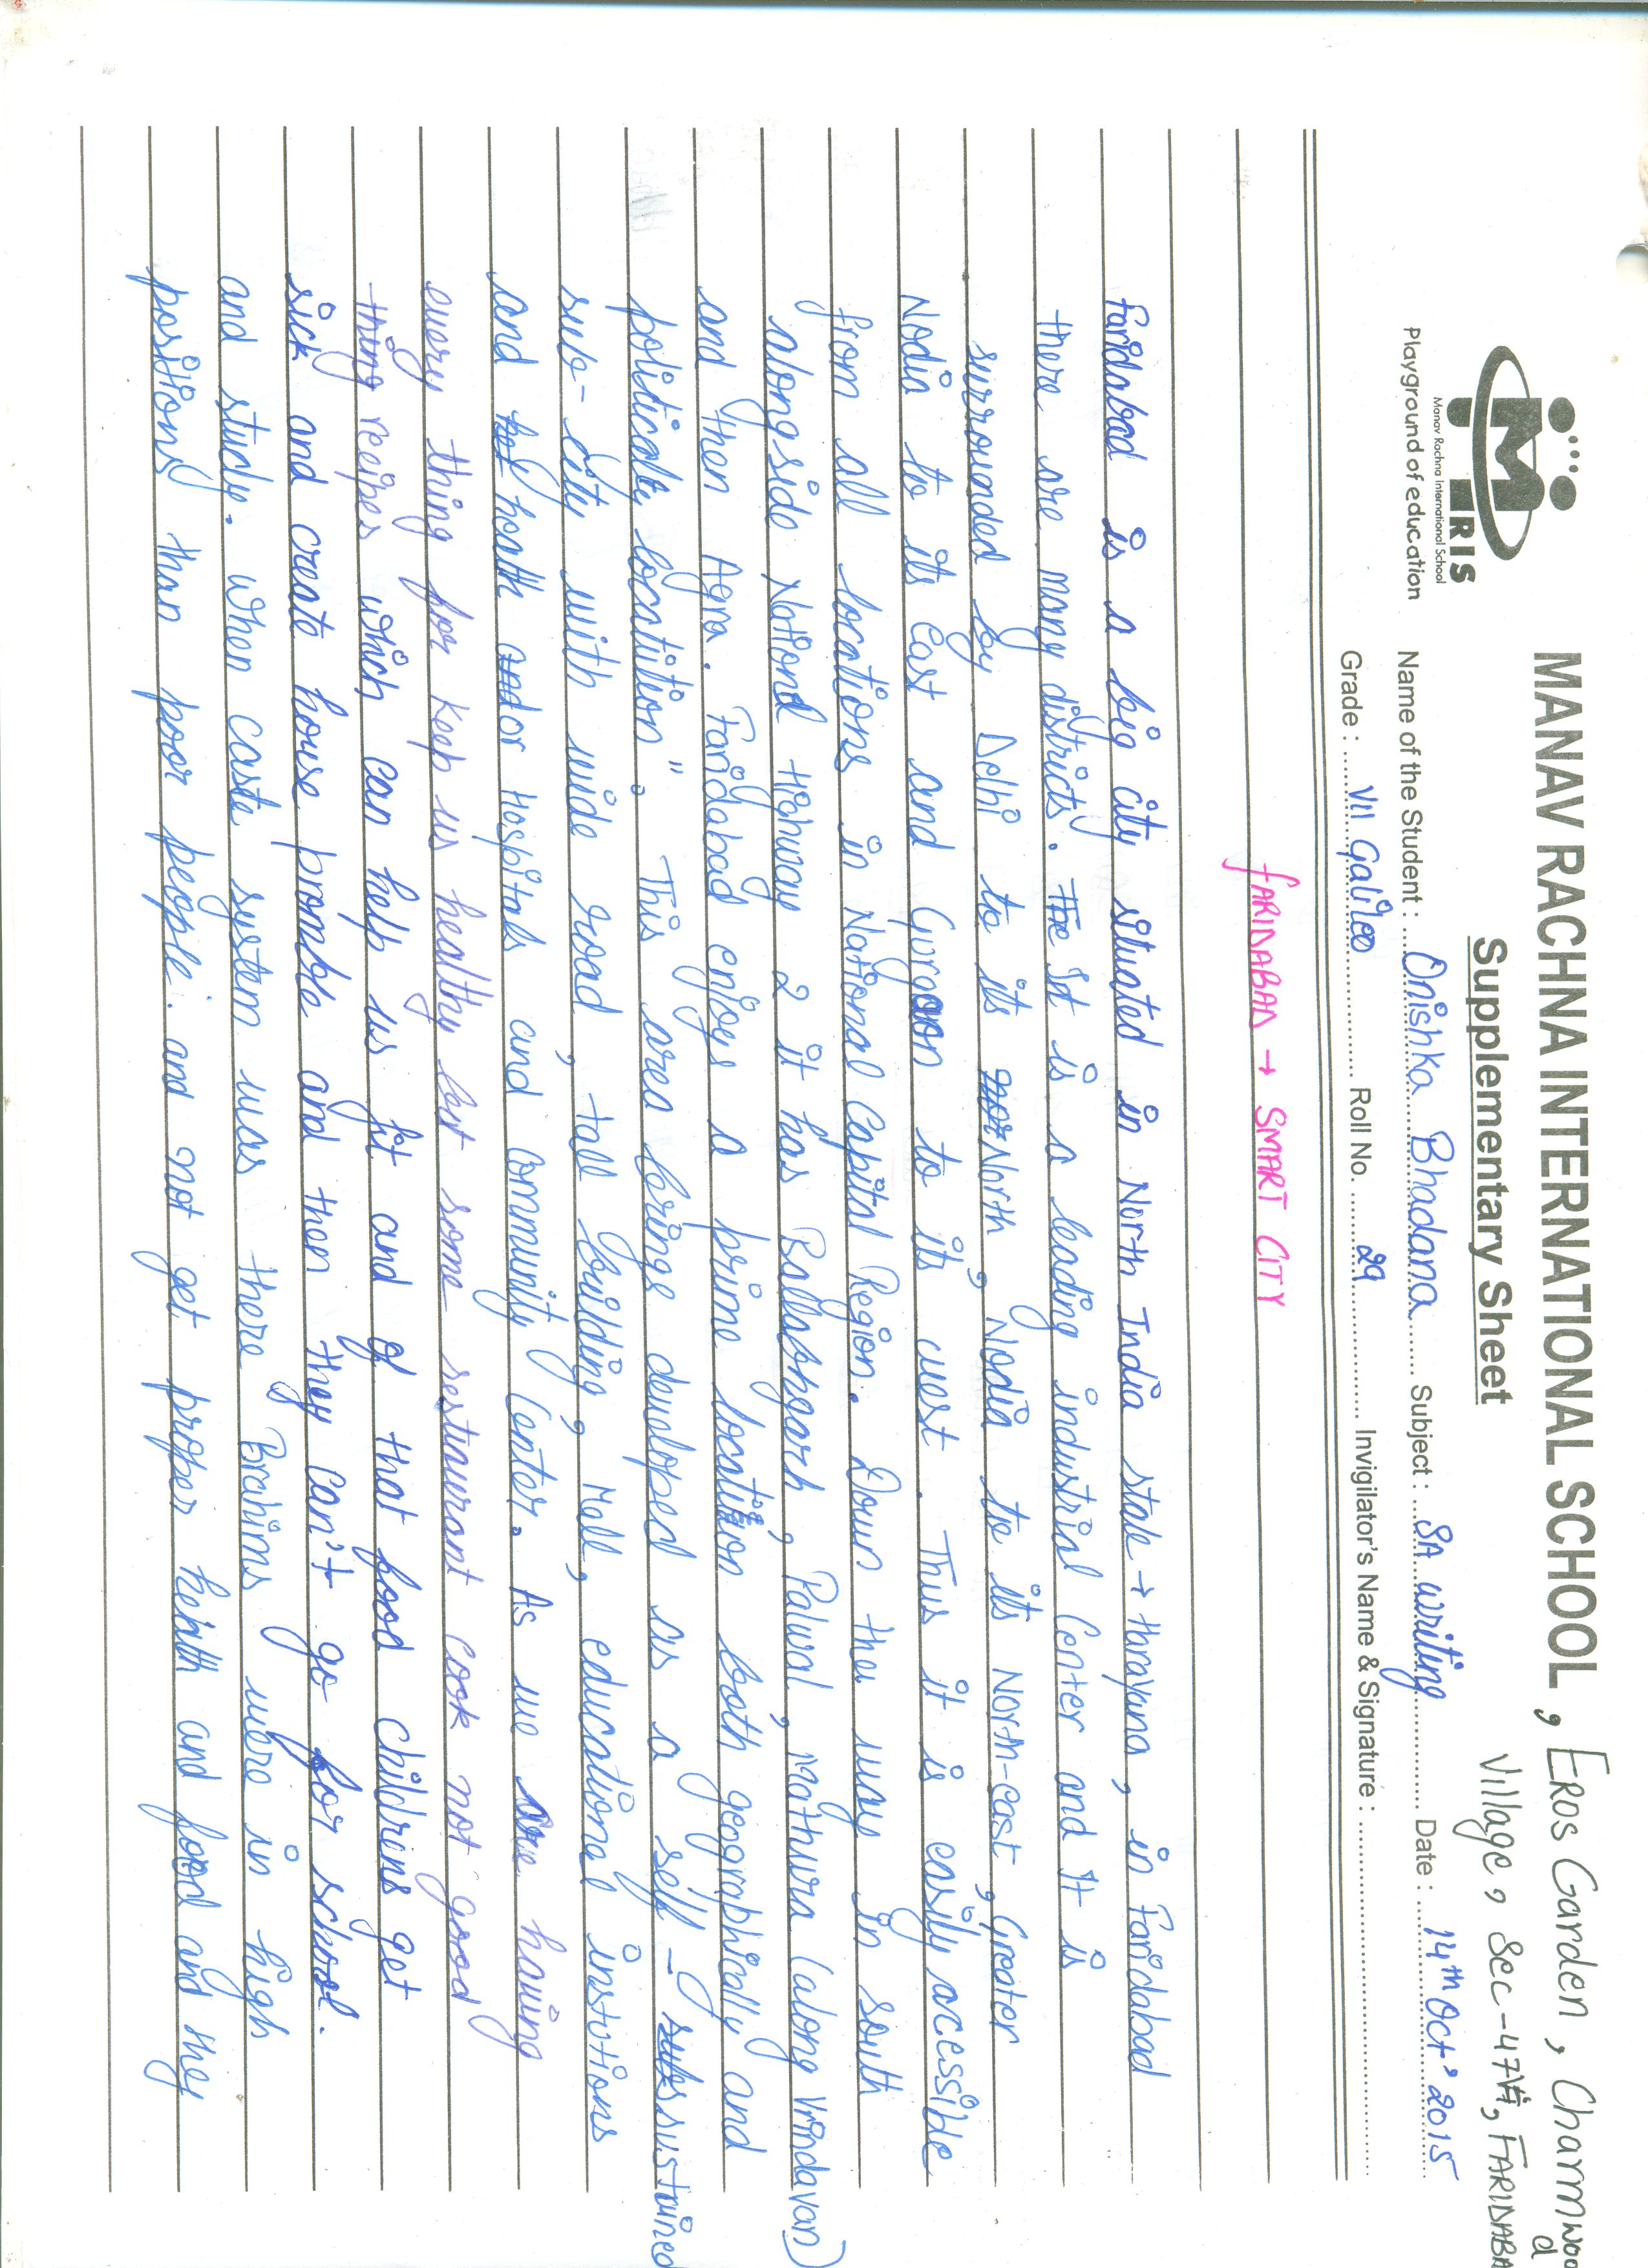 MANAV RACHNA INTERNATIONAL SCHOOL, Eros Garden, Charmwood
Village, Sec-47A, FARIDABA
Supplementary Sheet
MRIS
Manav Rachna International School
Playground of education
Name of the Student : Onishka Bhadana Subject : SA writing Date : 14th Oct' 2015
Grade : VII Galileo Roll No. 29 Invigilator's Name & Signature :
FARIDABAD → SMART CITY
Faridabad is a big city situated in North India state → Harayana, in Faridabad
there are many districts. The It is a leading industrial Center and It is
surrounded by Delhi to its nor North, Nodia to its North-east, Greater
Nodia to its East and Gurgaon to its west. Thus it is easily accessible
from all locations in National Capital Region. Down the way in south
alongside National Highway 2 it has Ballabhgarh, Palwal, Mathura (along Vrindavan)
and then Agra. Faridabad enjoys a prime location both geographically and
politically location". This area brings developed as a self - subs sustained
sub-city with wide road, tall building, Mall, educational instutions
and hel health and or Hospitals and Community Center. As we are having
every thing for keep us healthy but some resturant cook not good
thing recipes which can help us fit and of that food childrens get
sick and create house promble and then they can't go for school.
and study. When caste system was there Brahims were in high
positions than poor people. and not get proper health and food and they